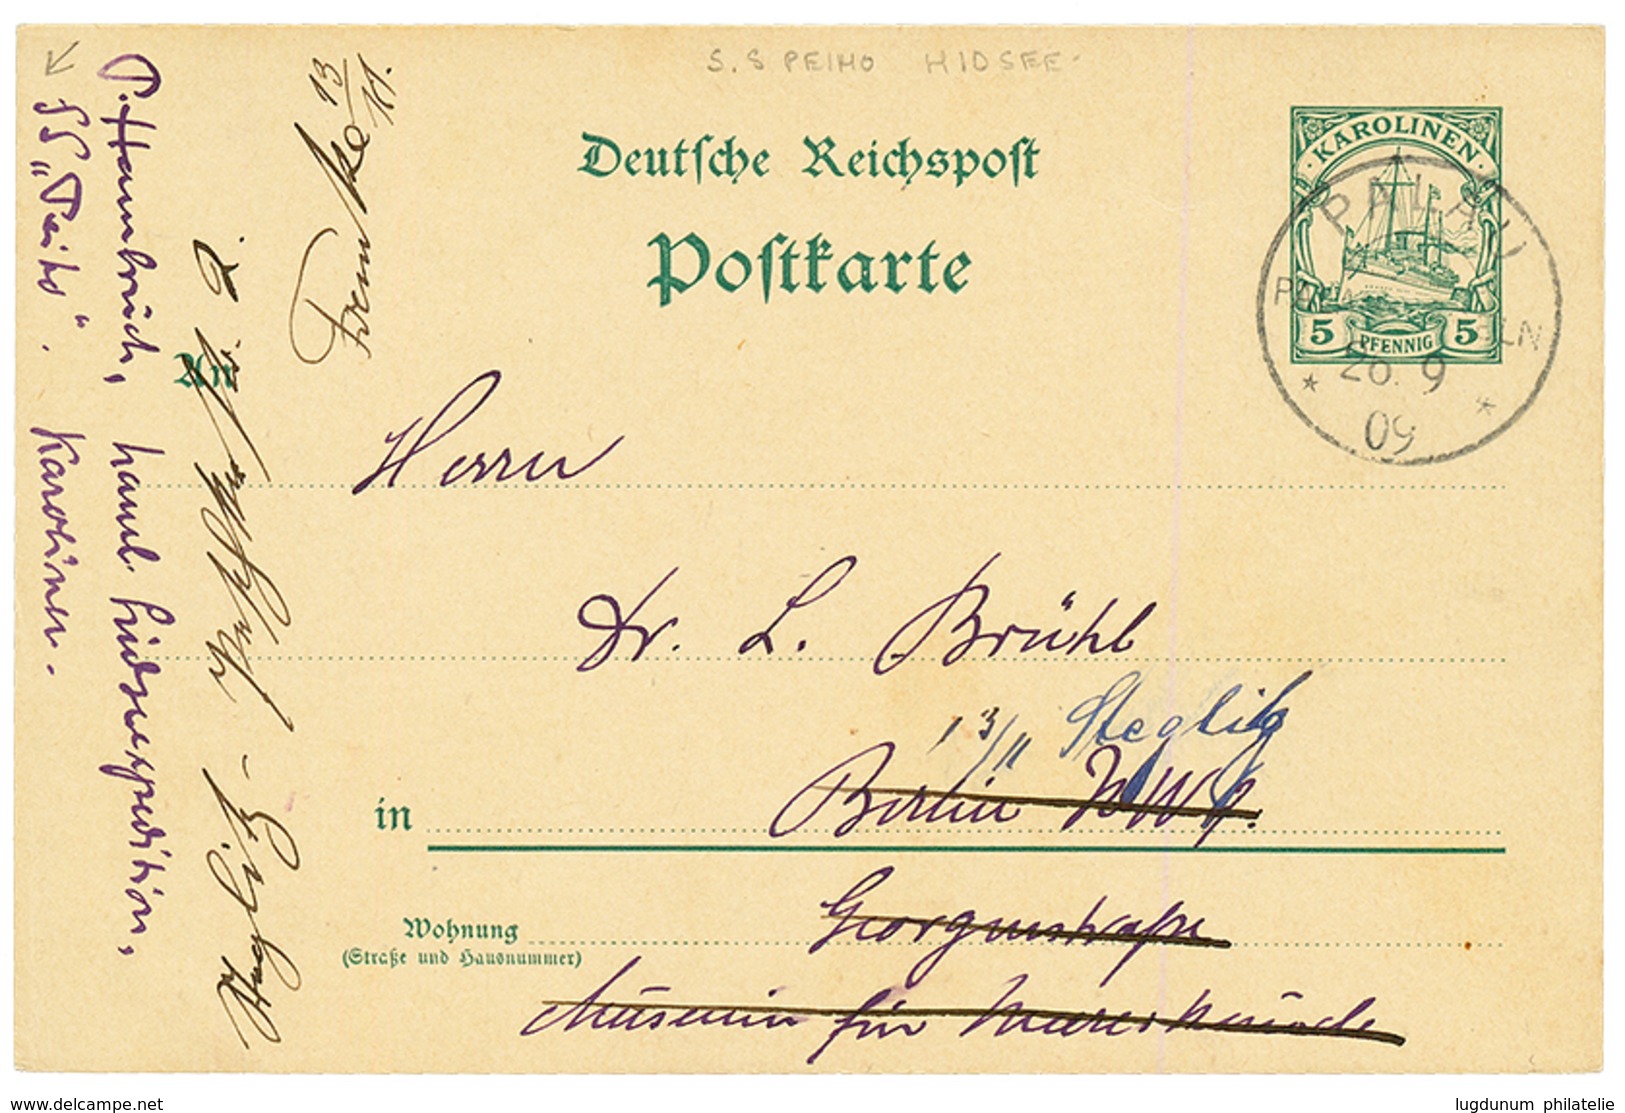 S.S PEIHO HIDSEE.
Deutsche Reichspost
Postkarte
KAROLINEN
5 PFENNIG 5
PALAU
26. 9
09
13/11.
An
Herrn
Dr. L. Brühl
13/11 Steglitz
in Berlin NW 7.
Georgenstrasse
Wohnung
(Straße und Hausnummer)
Museum für Meereskunde
P. Hambruch, hamb. Südseeexpedition,
SS „Peiho“. Karolinen.
Steglitz
www.delcampe.net
lugdunum philatelie